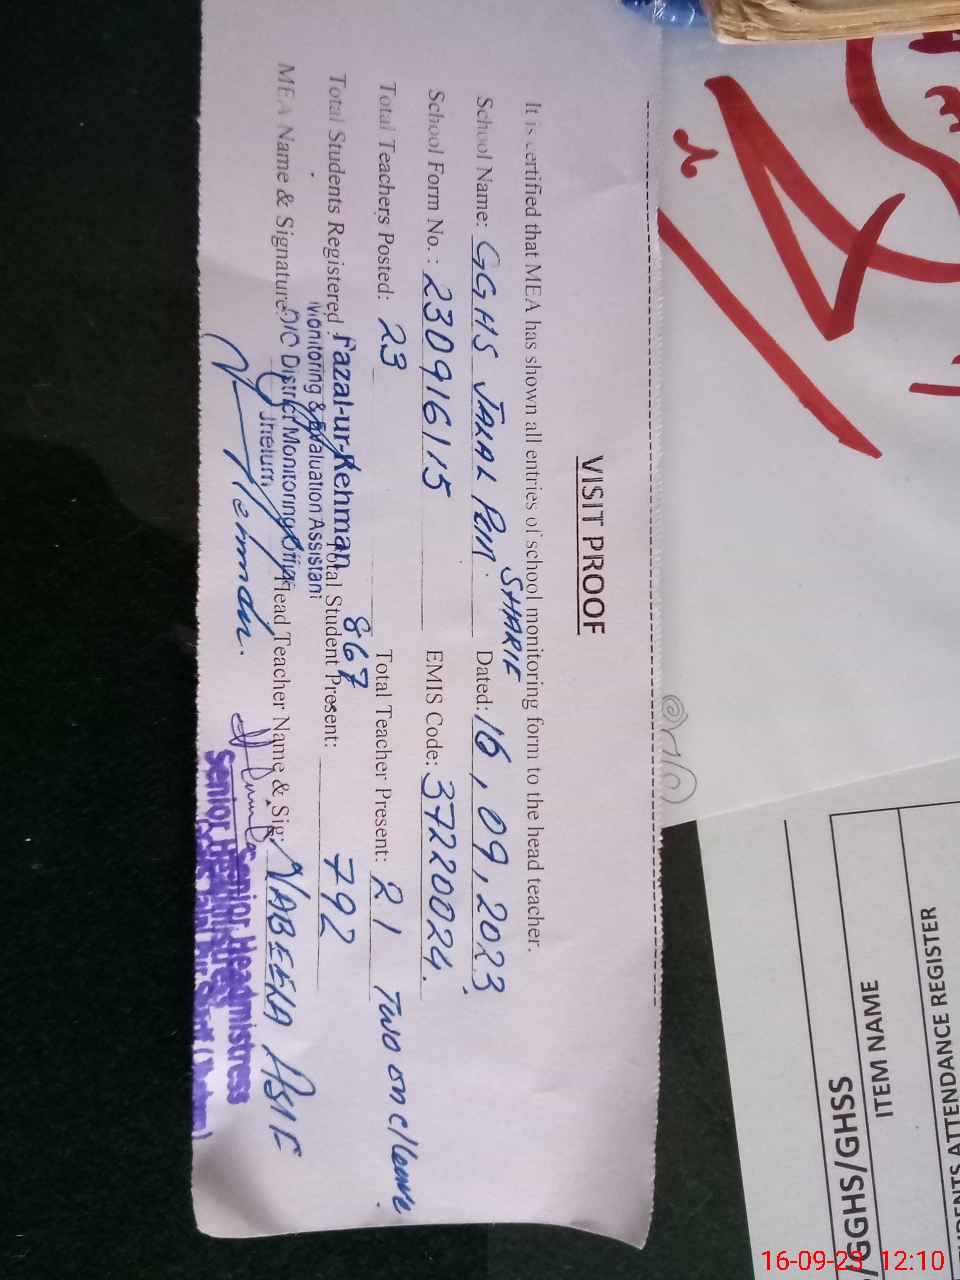 VISIT PROOF
It is certified that MEA has shown all entries of school monitoring form to the head teacher.
School Name: GGHS JALAL PUR SHARIF Dated: 16,09,2023
School Form No.: 230916115 EMIS Code: 37220024.
Total Teachers Posted: 23 Total Teacher Present: 21 Two on c/leave
Total Students Registered 867 Total Student Present: 792
Fazal-ur-Rehman
Monitoring & Evaluation Assistant
O/C District Monitoring
Jhelum
MEA Name & Signature Head Teacher Name & Sig: NABEELA ASIF
Senior Headmistress
Senior
/GGHS/GHSS
ITEM NAME
ATTENDANCE REGISTER
16-09-23 12:10